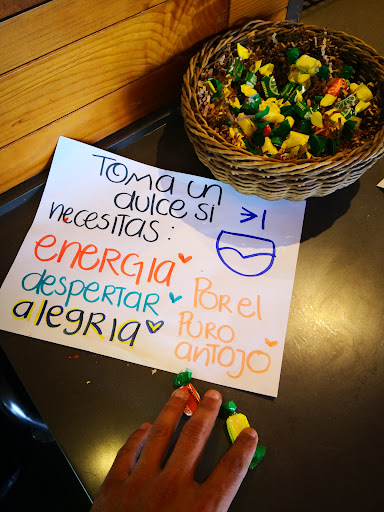 TOMA UN
DULCE SI
necesitas:
ENERGIA
DESPERTAR
alegria
Por el
PURO
antojo